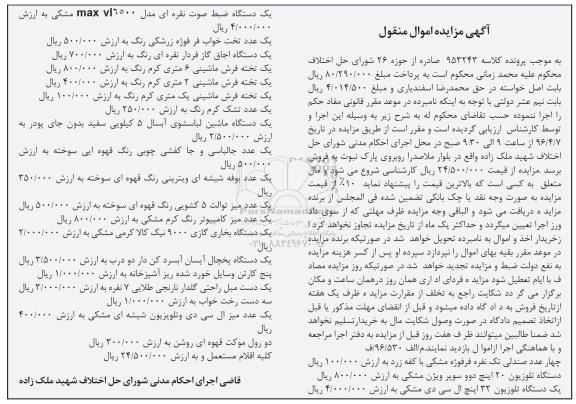 آگهی مزایده اموال منقول
به موجب پرونده کلاسه ۹۵۳۲۴۳ صادره از حوزه ۲۶ شورای حل اختلاف
محکوم علیه محمد زمانی محکوم است به پرداخت مبلغ ۸۰/۲۹۰/۰۰۰ ریال
بابت اصل خواسته در حق محمدرضا اسفندیاری و مبلغ ۴/۰۱۴/۵۰۰ ریال
بابت نیم عشر دولتی با توجه به اینکه نامبرده در موعد مقرر قانونی مفاد حکم
را اجرا ننموده حسب تقاضای محکوم له به شرح زیر به وسیله این اجرا و
توسط کارشناس ارزیابی گردیده است و مقرر است از طریق مزایده در تاریخ
۹۶/۴/۷ از ساعت ۹ الی ۹:۳۰ صبح در محل اجرای احکام مدنی شورای حل
اختلاف شهید ملک زاده واقع در بلوار ملاصدرا روبروی پارک نبوت به فروش
برسد .مزایده از قیمت ۲۴/۵۰۰/۰۰۰ ریال کارشناسی شروع می شود و مال
متعلق به کسی است که بالاترین قیمت را پیشنهاد نماید ۱۰٪ از قیمت
مزایده به صورت وجه نقد یا چک بانکی تضمین شده فی المجلس از برنده
مزاید ه دریافت می شود و الباقی وجه مزایده ظرف مهلتی که از سوی داد
ورز اجرا تعیین میگردد و حداکثر یک ماه از تاریخ مزایده تجاوز نخواهد کرد
زخریدار اخذ و اموال به نامبرده تحویل خواهد شد در صورتیکه برنده مزایده
در موعد مقرر بقیه بهای اموال را نپردازد سپرده او پس از کسر هزینه مزایده
به نفع دولت ضبط و مزایده تجدید خواهد شد در صورتیکه روز مزایده مصاد
ف با ایام تعطیل شود مزاید ه فردای اد اری همان روز درهمان ساعت و مکان
برگزار می گر دد شکایت راجع به تخلف از مقرارت مزاید ه ظرف یک هفته
ازتاریخ فروش به د اد گاه داده میشود و قبل از انقضای مهلت مذکور یا قبل
ازاتخاذ تصمیم دادگاه در صورت وصول شکایت مال به خریدارتسلیم نخواهد
شد ضمنا طالبین میتوانند ظر ف هفت روز قبل از مزایده به دفتر اجرا مراجعه
و با هماهنگی اجرا ازاموا ل بازدید نمایند.م/الف ۹۶/۵۳۰/ف
چهار عدد صندلی تک نفره فرفوژه مشکی با کفه زرد به ارزش ۱۰۰/۰۰۰ ریال
دستگاه تلوزیون ۲۰ اینچ دوو سوپر ویژن مشکی به ارزش ۸۰۰/۰۰۰ ریال
یک دستگاه تلوزیون ۳۲ اینچ ال سی دی مشکی به ارزش ۴/۰۰۰/۰۰۰ ریال
یک دستگاه ضبط صوت نقره ای مدل max vl۶۵۰۰ مشکی به ارزش
۴/۰۰۰/۰۰۰ ریال
یک عدد تخت خواب فر فوژه زرشکی رنگ به ارزش ۵۰۰/۰۰۰ ریال
یک دستگاه اجاق گاز فردار نقره ای رنگ به ارزش ۷۰۰/۰۰۰ ریال
یک تخته فرش ماشینی ۶ متری کرم رنگ به ارزش ۸۰۰/۰۰۰ ریال
یک تخته فرش ماشینی ۲ متری کرم رنگ به ارزش ۴۰۰/۰۰۰ ریال
یک تخته فرش ماشینی یک متری کرم رنگ به ارزش ۱۰۰/۰۰۰ ریال
یک عدد تشک کرم رنگ به ارزش ۲۵۰/۰۰۰ ریال
یک دستگاه ماشین لباسشوی آبسال ۵ کیلویی سفید بدون جای پودر به
ارزش ۲/۵۰۰/۰۰۰ ریال
یک عدد جالباسی و جا کفشی چوبی رنگ قهوه ایی سوخته به ارزش
۵۰۰/۰۰۰ ریال
یک عدد بوفه شیشه ای ویترینی رنگ قهوه ای سوخته به ارزش ۳۵۰/۰۰۰
ریال
یک عدد میز توالت ۵ کشویی رنگ قهوه ای سوخته به ارزش ۵۰۰/۰۰۰ ریال
یک عدد میز کامپیوتر رنگ کرم مشکی به ارزش ۸۰۰/۰۰۰ ریال
یک دستگاه بخاری گازی ۹۰۰۰ نیک کالا کرمی مشکی به ارزش ۲/۰۰۰/۰۰۰
ریال
یک دستگاه یخچال آیسان آبسرد کن دار دو درب به ارزش ۳/۵۰۰/۰۰۰ ریال
پنج کارتن وسایل خورده شده ریز آشپزخانه به ارزش ۱/۰۰۰/۰۰۰ ریال
یک دست مبل راحتی گلدار نارنجی طلایی ۷ نفره به ارزش ۳/۰۰۰/۰۰۰ ریال
سه دست رخت خواب به ارزش ۱/۰۰۰/۰۰۰ ریال
یک عدد میز ال سی دی وتلویزیون شیشه ای مشکی به ارزش ۴۰۰/۰۰۰
ریال
دو رول موکت قهوه ای روشن به ارزش ۳۰۰/۰۰۰ ریال
کلیه اقلام مستعمل و به ارزش ۲۴/۵۰۰/۰۰۰ ریال
قاضی اجرای احکام مدنی شورای حل اختلاف شهید ملک زاده